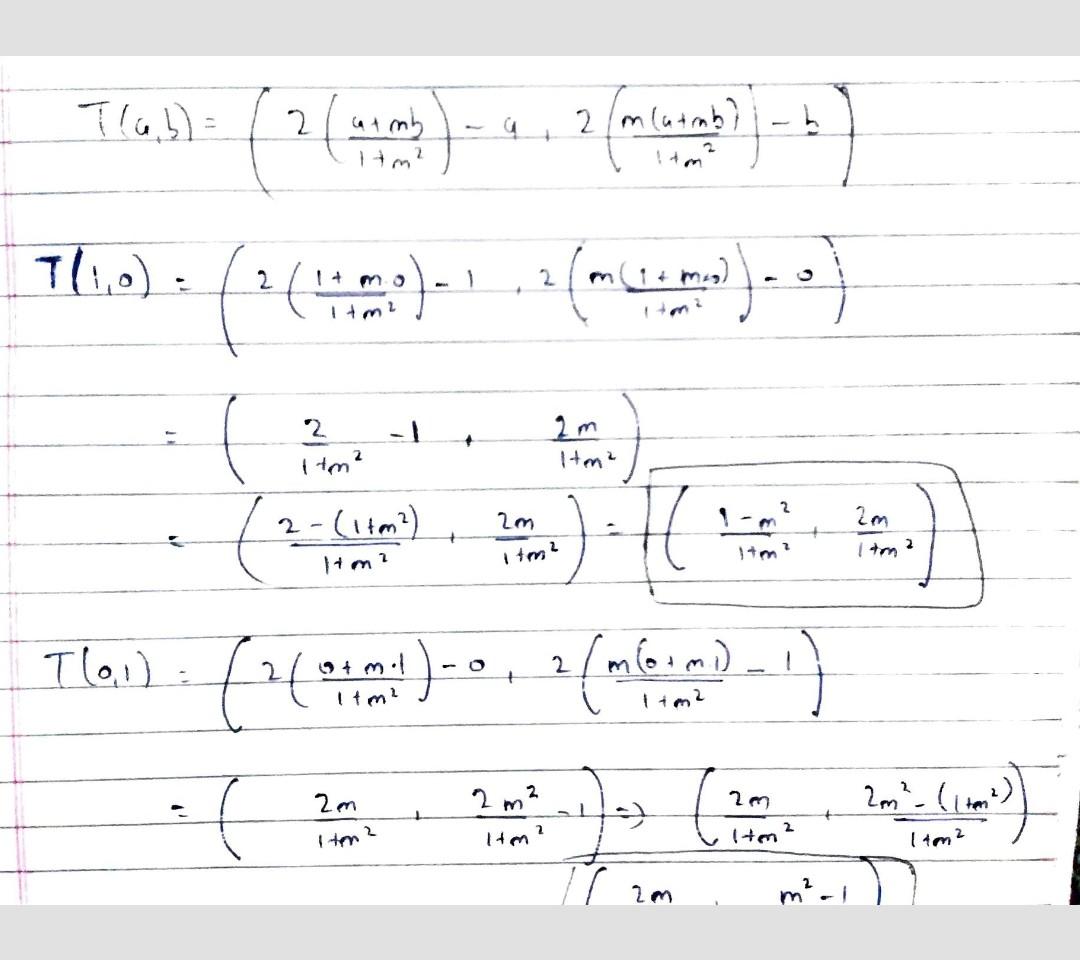 T(a,b) = ( 2 ( (a+mb)/(1+m²) ) - a , 2 ( m(a+mb)/(1+m²) ) - b )
T(1,0) = ( 2 ( (1+m·0)/(1+m²) ) - 1 , 2 ( m(1+m·0)/(1+m²) ) - 0 )
= ( 2/(1+m²) - 1 , 2m/(1+m²) )
= ( (2-(1+m²))/(1+m²) , 2m/(1+m²) ) = ( (1-m²)/(1+m²) , 2m/(1+m²) )
T(0,1) = ( 2 ( (0+m·1)/(1+m²) ) - 0 , 2 ( m(0+m·1)/(1+m²) - 1 )
= ( 2m/(1+m²) , 2m²/(1+m²) - 1 ) => ( 2m/(1+m²) , (2m²-(1+m²))/(1+m²) )
( 2m , m²-1 )